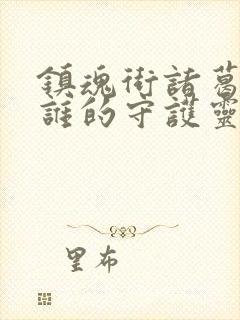 鎮魂街諸葛
誰的守護靈
里布